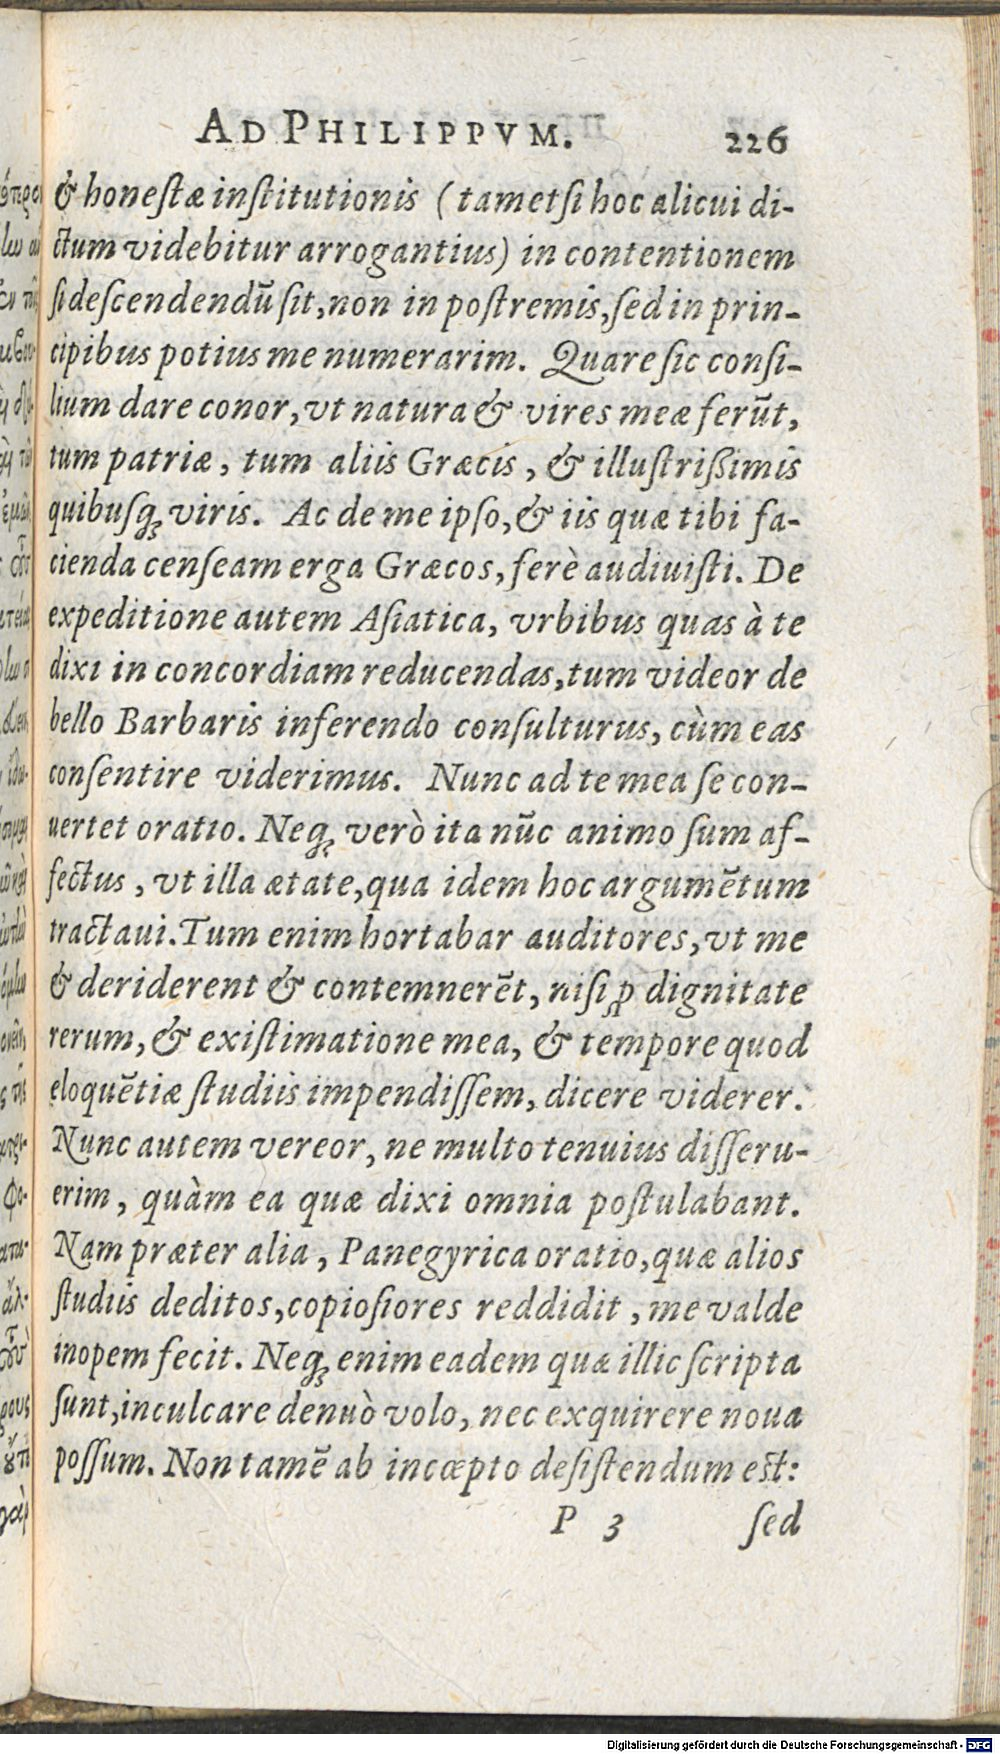 AD PHILIPPVM. 226
& honeſtæ inſtitutionis (tametſi hoc alicui di-
ctum videbitur arrogantius) in contentionem
ſi deſcendendū ſit, non in poſtremis, ſed in prin-
cipibus potius me numerarim. Quare ſic conſi-
lium dare conor, vt natura & vires meæ ferūt,
tum patriæ, tum aliis Græcis, & illuſtrißimis
quibuſq; viris. Ac de me ipſo, & iis quæ tibi fa-
cienda cenſeam erga Græcos, ferè audiuiſti. De
expeditione autem Aſiatica, vrbibus quas à te
dixi in concordiam reducendas, tum videor de
bello Barbaris inferendo conſulturus, cùm eas
conſentire viderimus. Nunc ad te mea ſe con-
uertet oratio. Neq; verò ita nūc animo ſum af-
fectus, vt illa ætate, qua idem hoc argumētum
tractaui. Tum enim hortabar auditores, vt me
& deriderent & contemnerēt, niſi ꝓ dignitate
rerum, & exiſtimatione mea, & tempore quod
eloquētiæ ſtudiis impendiſſem, dicere viderer.
Nunc autem vereor, ne multo tenuius diſſeru-
erim, quàm ea quæ dixi omnia poſtulabant.
Nam præter alia, Panegyrica oratio, quæ alios
ſtudiis deditos, copioſiores reddidit, me valde
inopem fecit. Neq; enim eadem quæ illic ſcripta
ſunt, inculcare denuò volo, nec exquirere noua
poſſum. Non tamē ab incœpto deſiſtendum eſt:
P 3 ſed
Digitalisierung gefördert durch die Deutsche Forschungsgemeinschaft - DFG